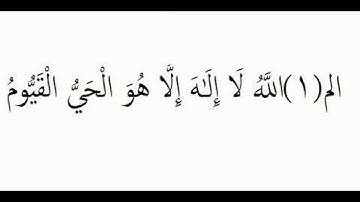 الم(١)اللَّهُ لَا إِلَٰهَ إِلَّا هُوَ الْحَيُّ الْقَيُّومُ